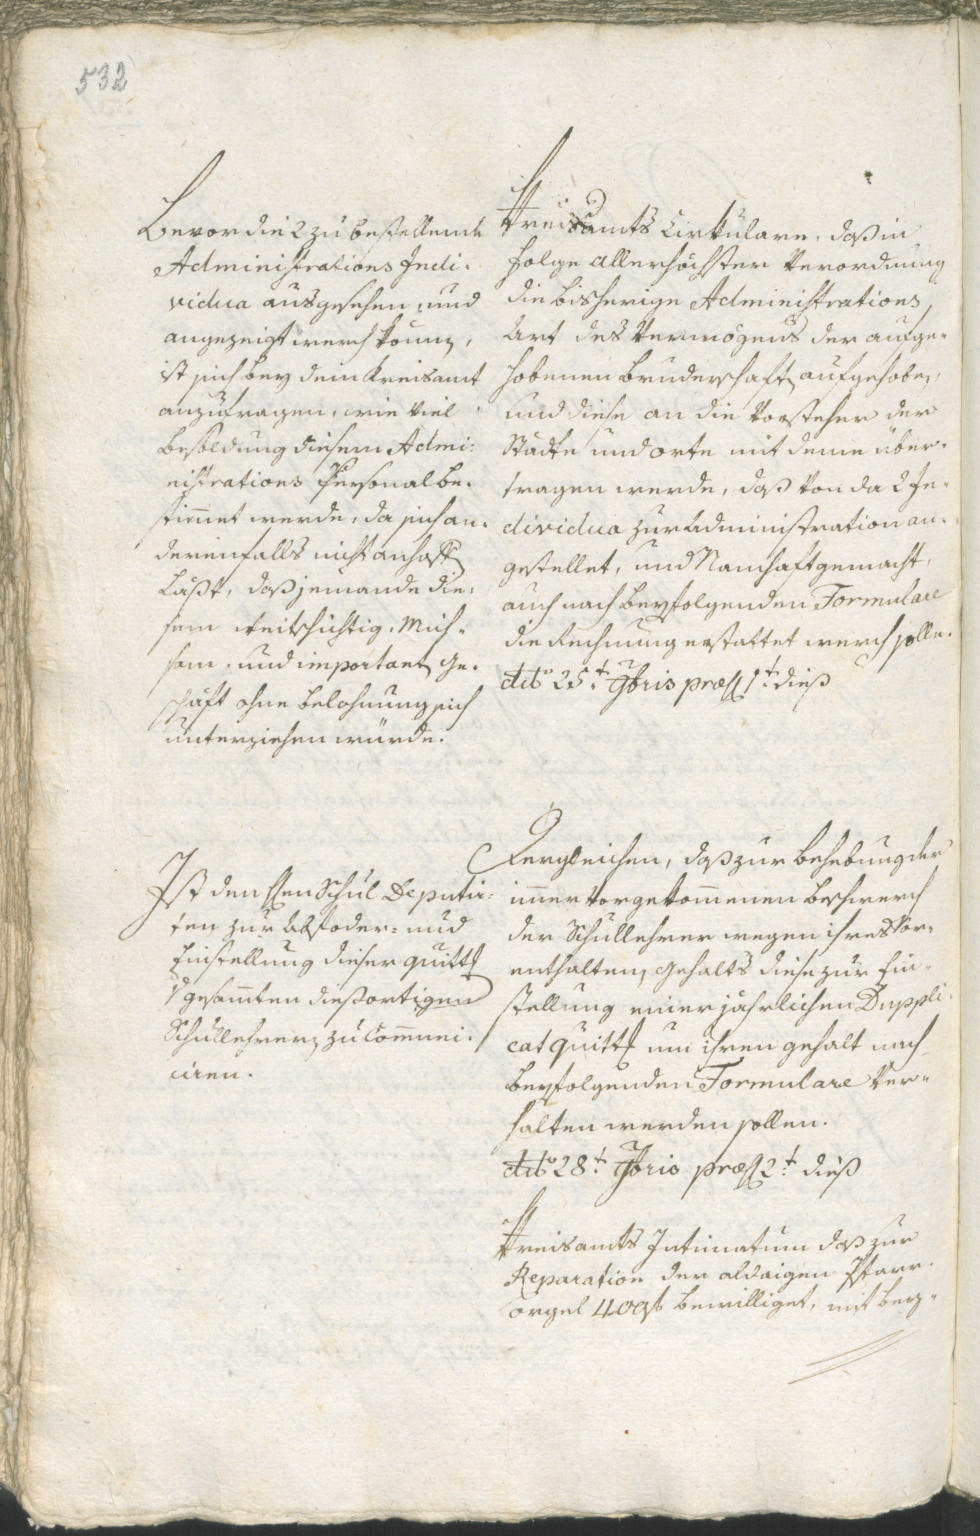 532
Bevor die 2 zu bestellende
Administrations Indi-
vidua ausgesehen, und
angezeigt werden können,
ist sich bey dem Kreisamt
anzufragen, wie viel
Besoldung diesem Admi-
nistrations Personal be-
stimet werde, da sich an-
derenfalls nicht anhoffen
laßt, daß jemande die-
sem weitschichtig, Müh-
sam, und importanten Ge-
schäft ohne Belohnung sich
unterziehen würde.
Ist den Schul Deputir-
ten zur und
Einstellung dieser quitt
gesamten dießortigen
Schullehrern zu Commui-
ciren.
Kreisamts Cirkulare, daß in
Folge allerhöchster Verordnung
die bisherige Administrations
Art des Vermögens der aufge-
hobenen Bruderschaften aufgehoben,
und diese an die Vorsteher der
Städte und Orte mit deme über-
tragen werde, daß von da 2 In-
dividua zur Administration an-
gestellet, und Namhaft gemacht,
auch nach beyfolgenden Formulare
die Rechnung erstattet werden solle.
ddto 25t 9bris præs 1t dieß
Dergleichen, daß zur Behebung der
immer vorgekommenen Beschwerden
der Schullehrer wegen ihres Vor-
enthaltenen Gehalts diese zur Ein-
stellung einer jährlichen Duppli-
cat quitt um ihren Gehalt nach
beyfolgenden Formulare Ver-
halten werden sollen.
ddto 28t 9bris præs 2t dieß
Kreisamts Intimatum daß zur
Reparation der aldaigen Pfarr-
orgel 40 bewilliget, mit Bey-